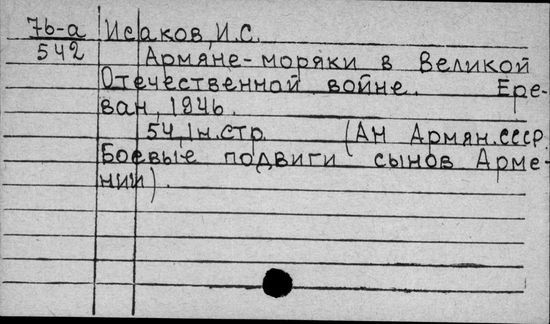 7б-а Исаков, И.С.
542 Армяне-моряки в Великой
Отечественной войне. Ере-
ван, 1946.
54, 1н.стр. (Ан Армян.ссср.
Боевые подвиги сынов Арме-
нии).